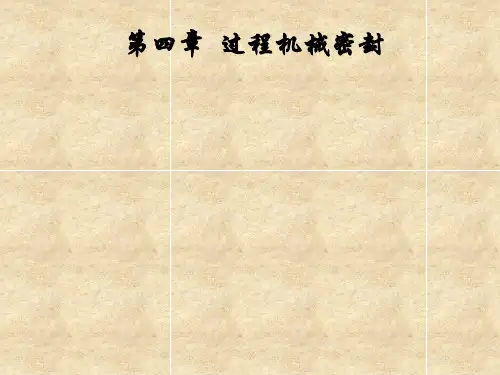 第四章 过程机械密封